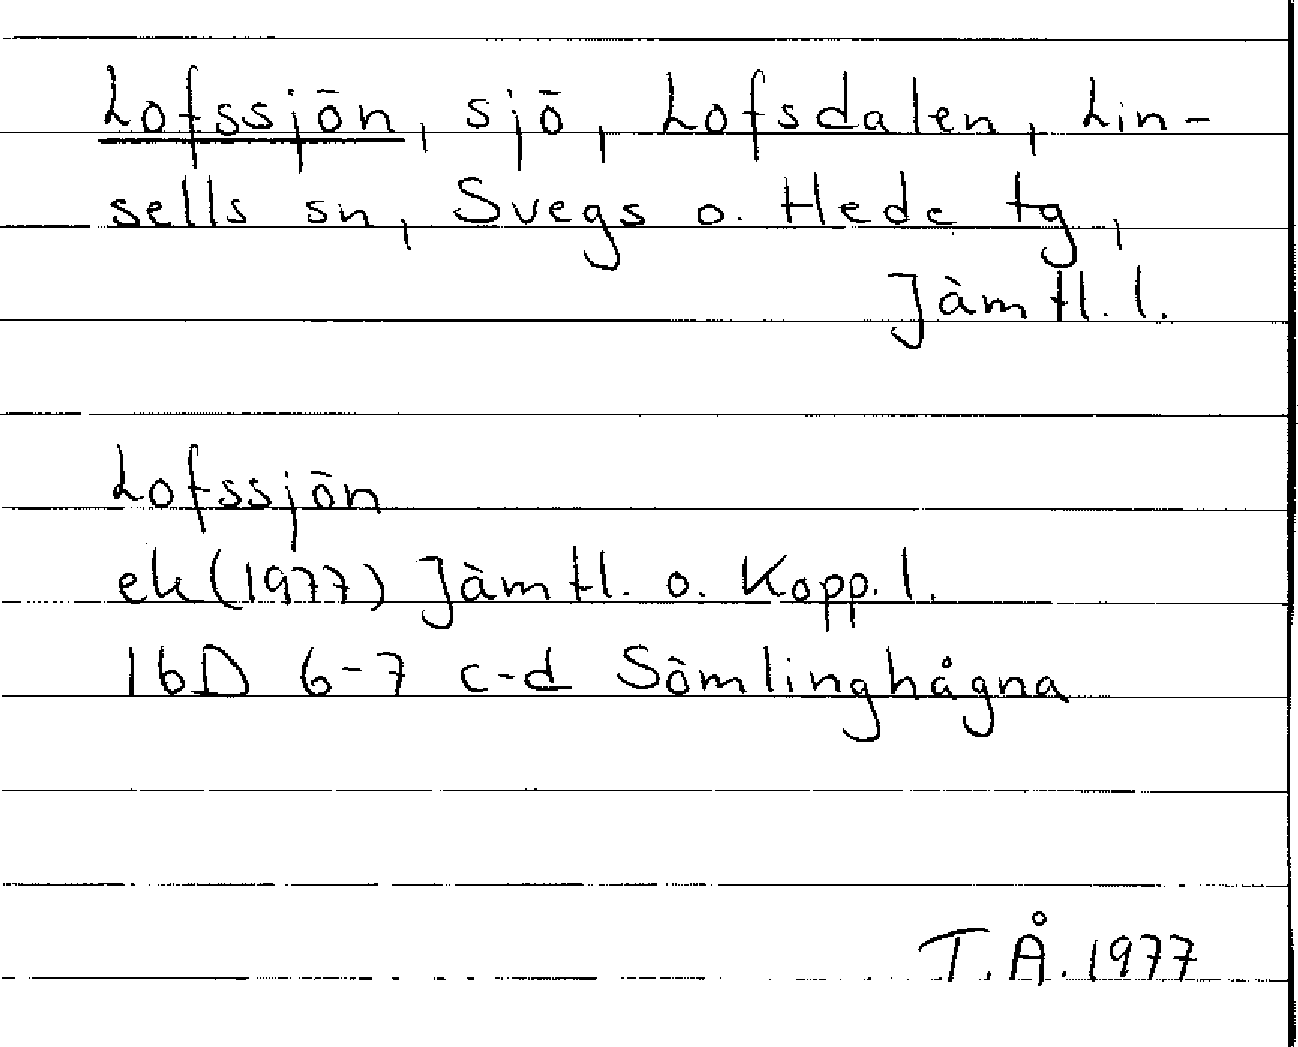 Lofssjön, sjö, Lofsdalen, Lin-
sells sn, Svegs o. Hede tg,
Jämtl. l.
Lofssjön
ek (1977) Jämtl. o. Kopp. l.
16D 6-7 c-d Sömlinghågna
T.Å. 1977